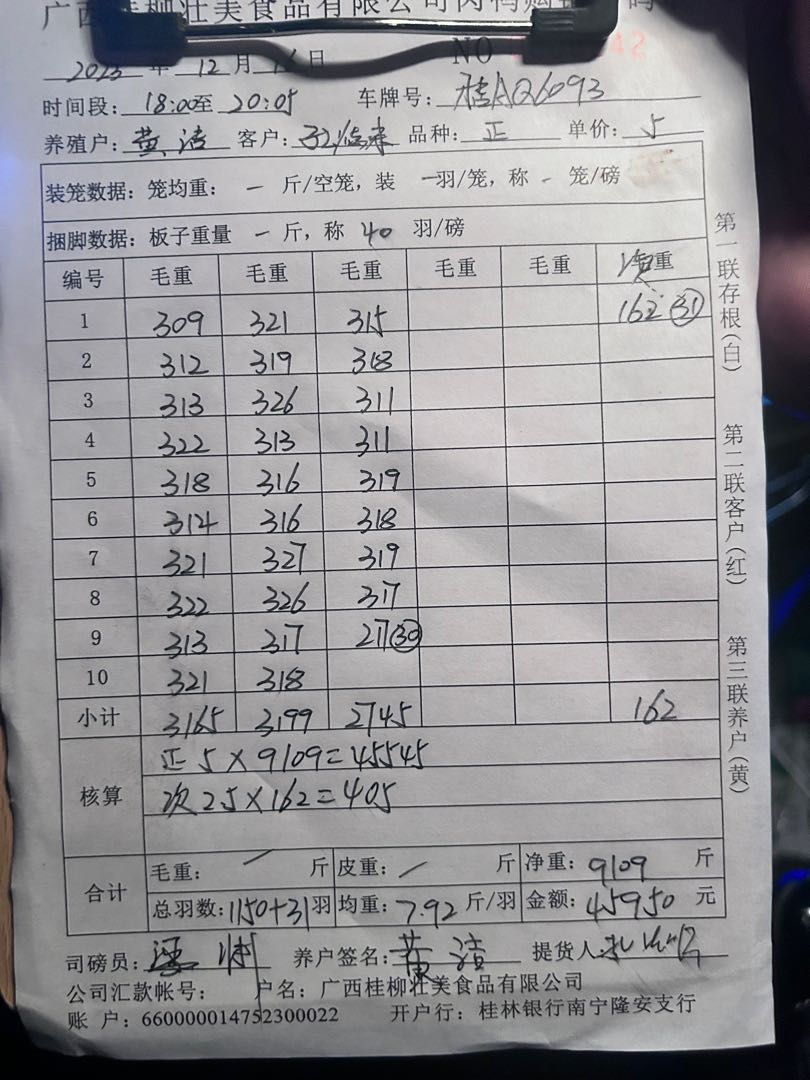 广西桂柳壮美食品有限公司肉鸭购销
NO 42
2023年 12月 日
时间段: 18:00至 20:05 车牌号: 桂AQ6093
养殖户: 黄洁 客户: 品种: 正 单价: 5
装笼数据: 笼均重: 一 斤/空笼, 装 一羽/笼, 称 - 笼/磅
捆脚数据: 板子重量 一 斤, 称 40 羽/磅
编号 毛重 毛重 毛重 毛重 毛重 重
1 309 321 315 162 (31)
2 312 319 318
3 313 326 311
4 322 313 311
5 318 316 319
6 314 316 318
7 321 327 319
8 322 326 317
9 313 317 217(30)
10 321 318
小计 3165 3199 2745 162
核算 正 5×9109=45545
次 25×162=405
合计 毛重: / 斤 皮重: / 斤 净重: 9109 斤
总羽数: 1150+31羽 均重: 7.92 斤/羽 金额: 45950 元
司磅员: 养户签名: 黄洁 提货人
公司汇款帐号: 户名: 广西桂柳壮美食品有限公司
账 户: 660000014752300022 开户行: 桂林银行南宁隆安支行
第一联存根(白) 第二联客户(红) 第三联养户(黄)